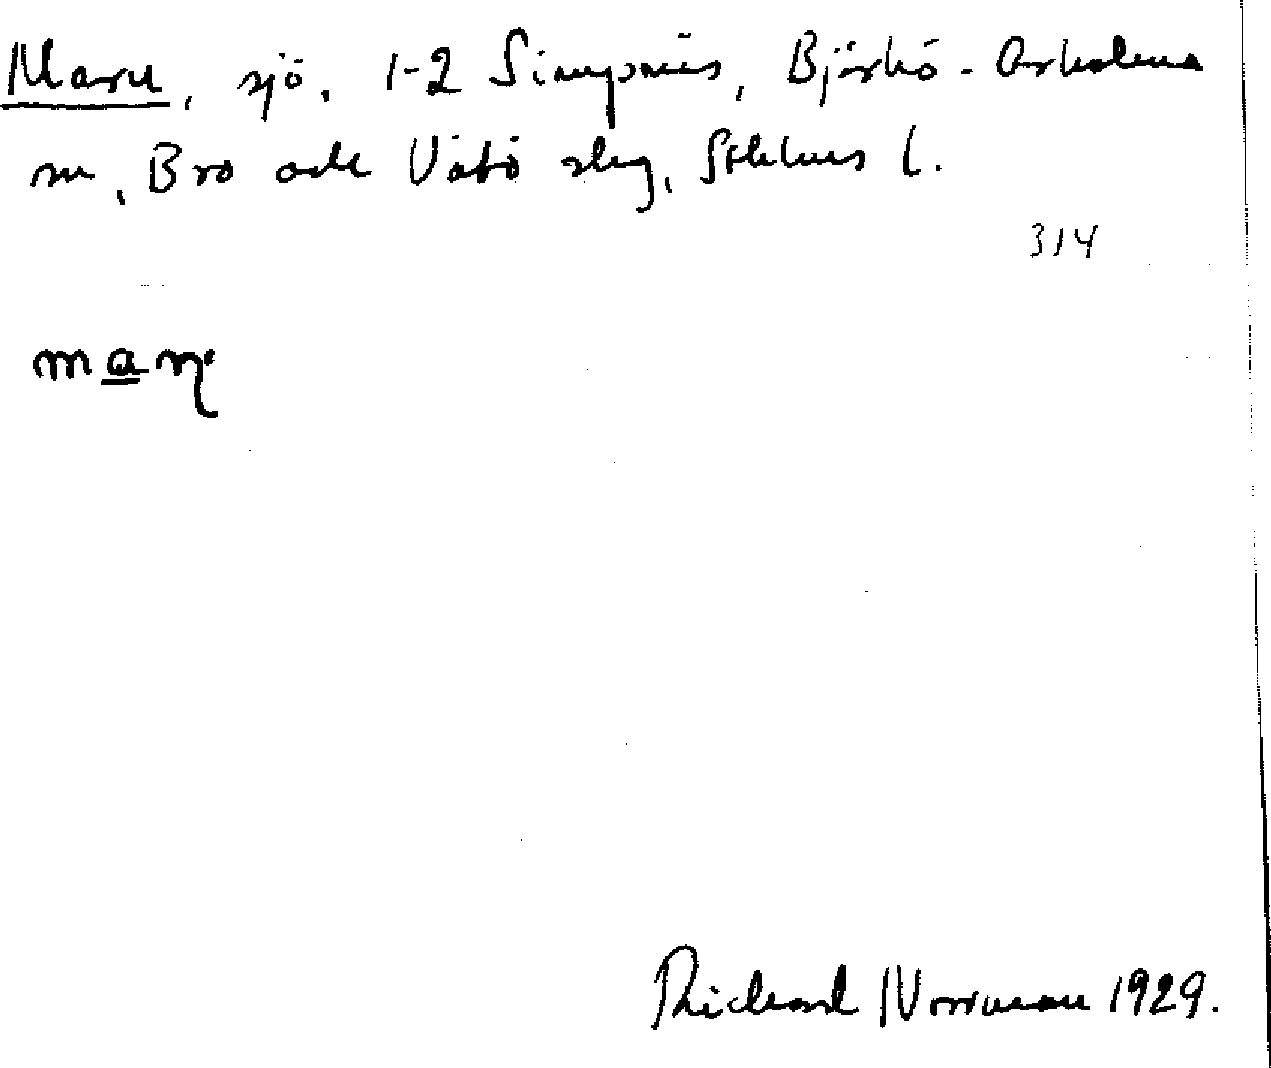 Maren, sjö, 1-2 Simpnäs, Björkö-Arholma
sn, Bro och Vätö slg, Sthlms l.
314
Richard Norrman 1929.